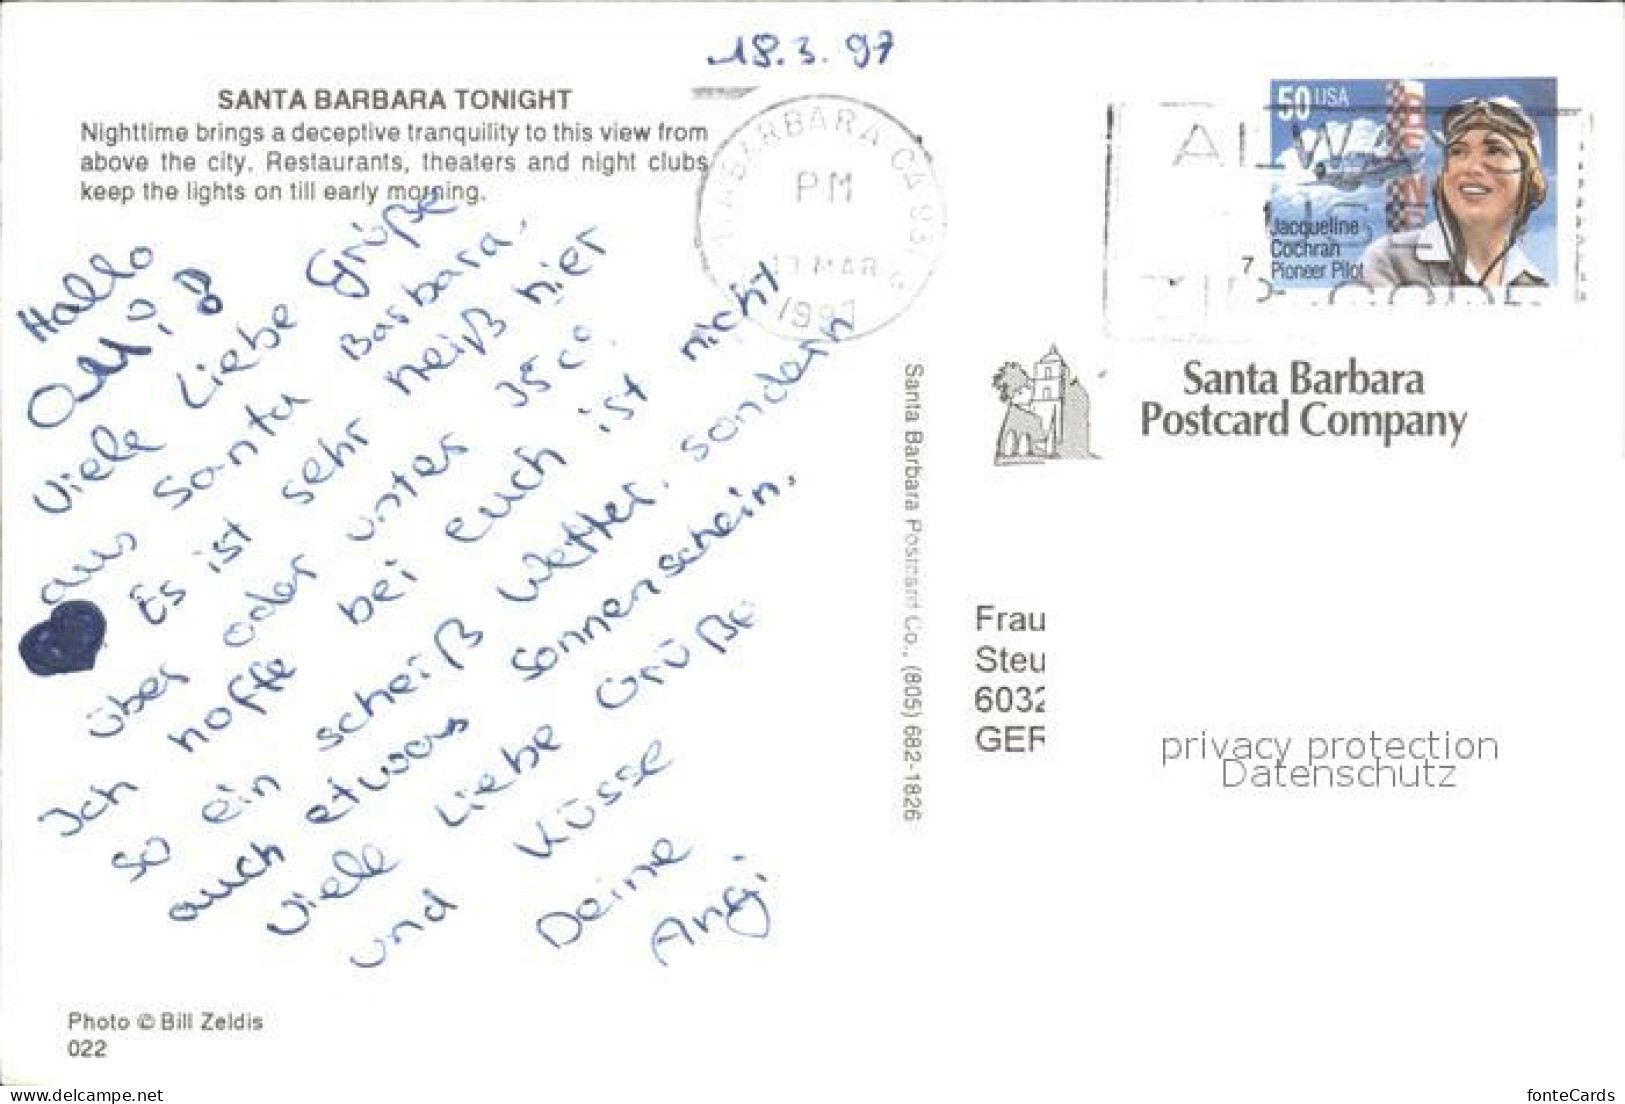 18.3.97
SANTA BARBARA TONIGHT
Nighttime brings a deceptive tranquility to this view from
above the city. Restaurants, theaters and night clubs
keep the lights on till early morning.
Hallo
Omi!
Viele Liebe Grüße
aus Santa Barbara.
Es ist sehr heiß hier
über oder unter 35 C°.
Ich hoffe bei euch ist nicht
so ein scheiß Wetter, sondern
auch etwas Sonnenschein.
Viele Liebe Grüße
und Küsse
Deine
Angi
Photo © Bill Zeldis
022
BARBARA CA 931
PM
17 MAR
1997
Santa Barbara Postcard Co., (805) 682-1826
50 USA
Jacqueline
Cochran
Pioneer Pilot
ALWA
USE
ZIP CODE
Santa Barbara
Postcard Company
Frau
Steu
6032
GER
privacy protection
Datenschutz
delcampe.net
fonteCards